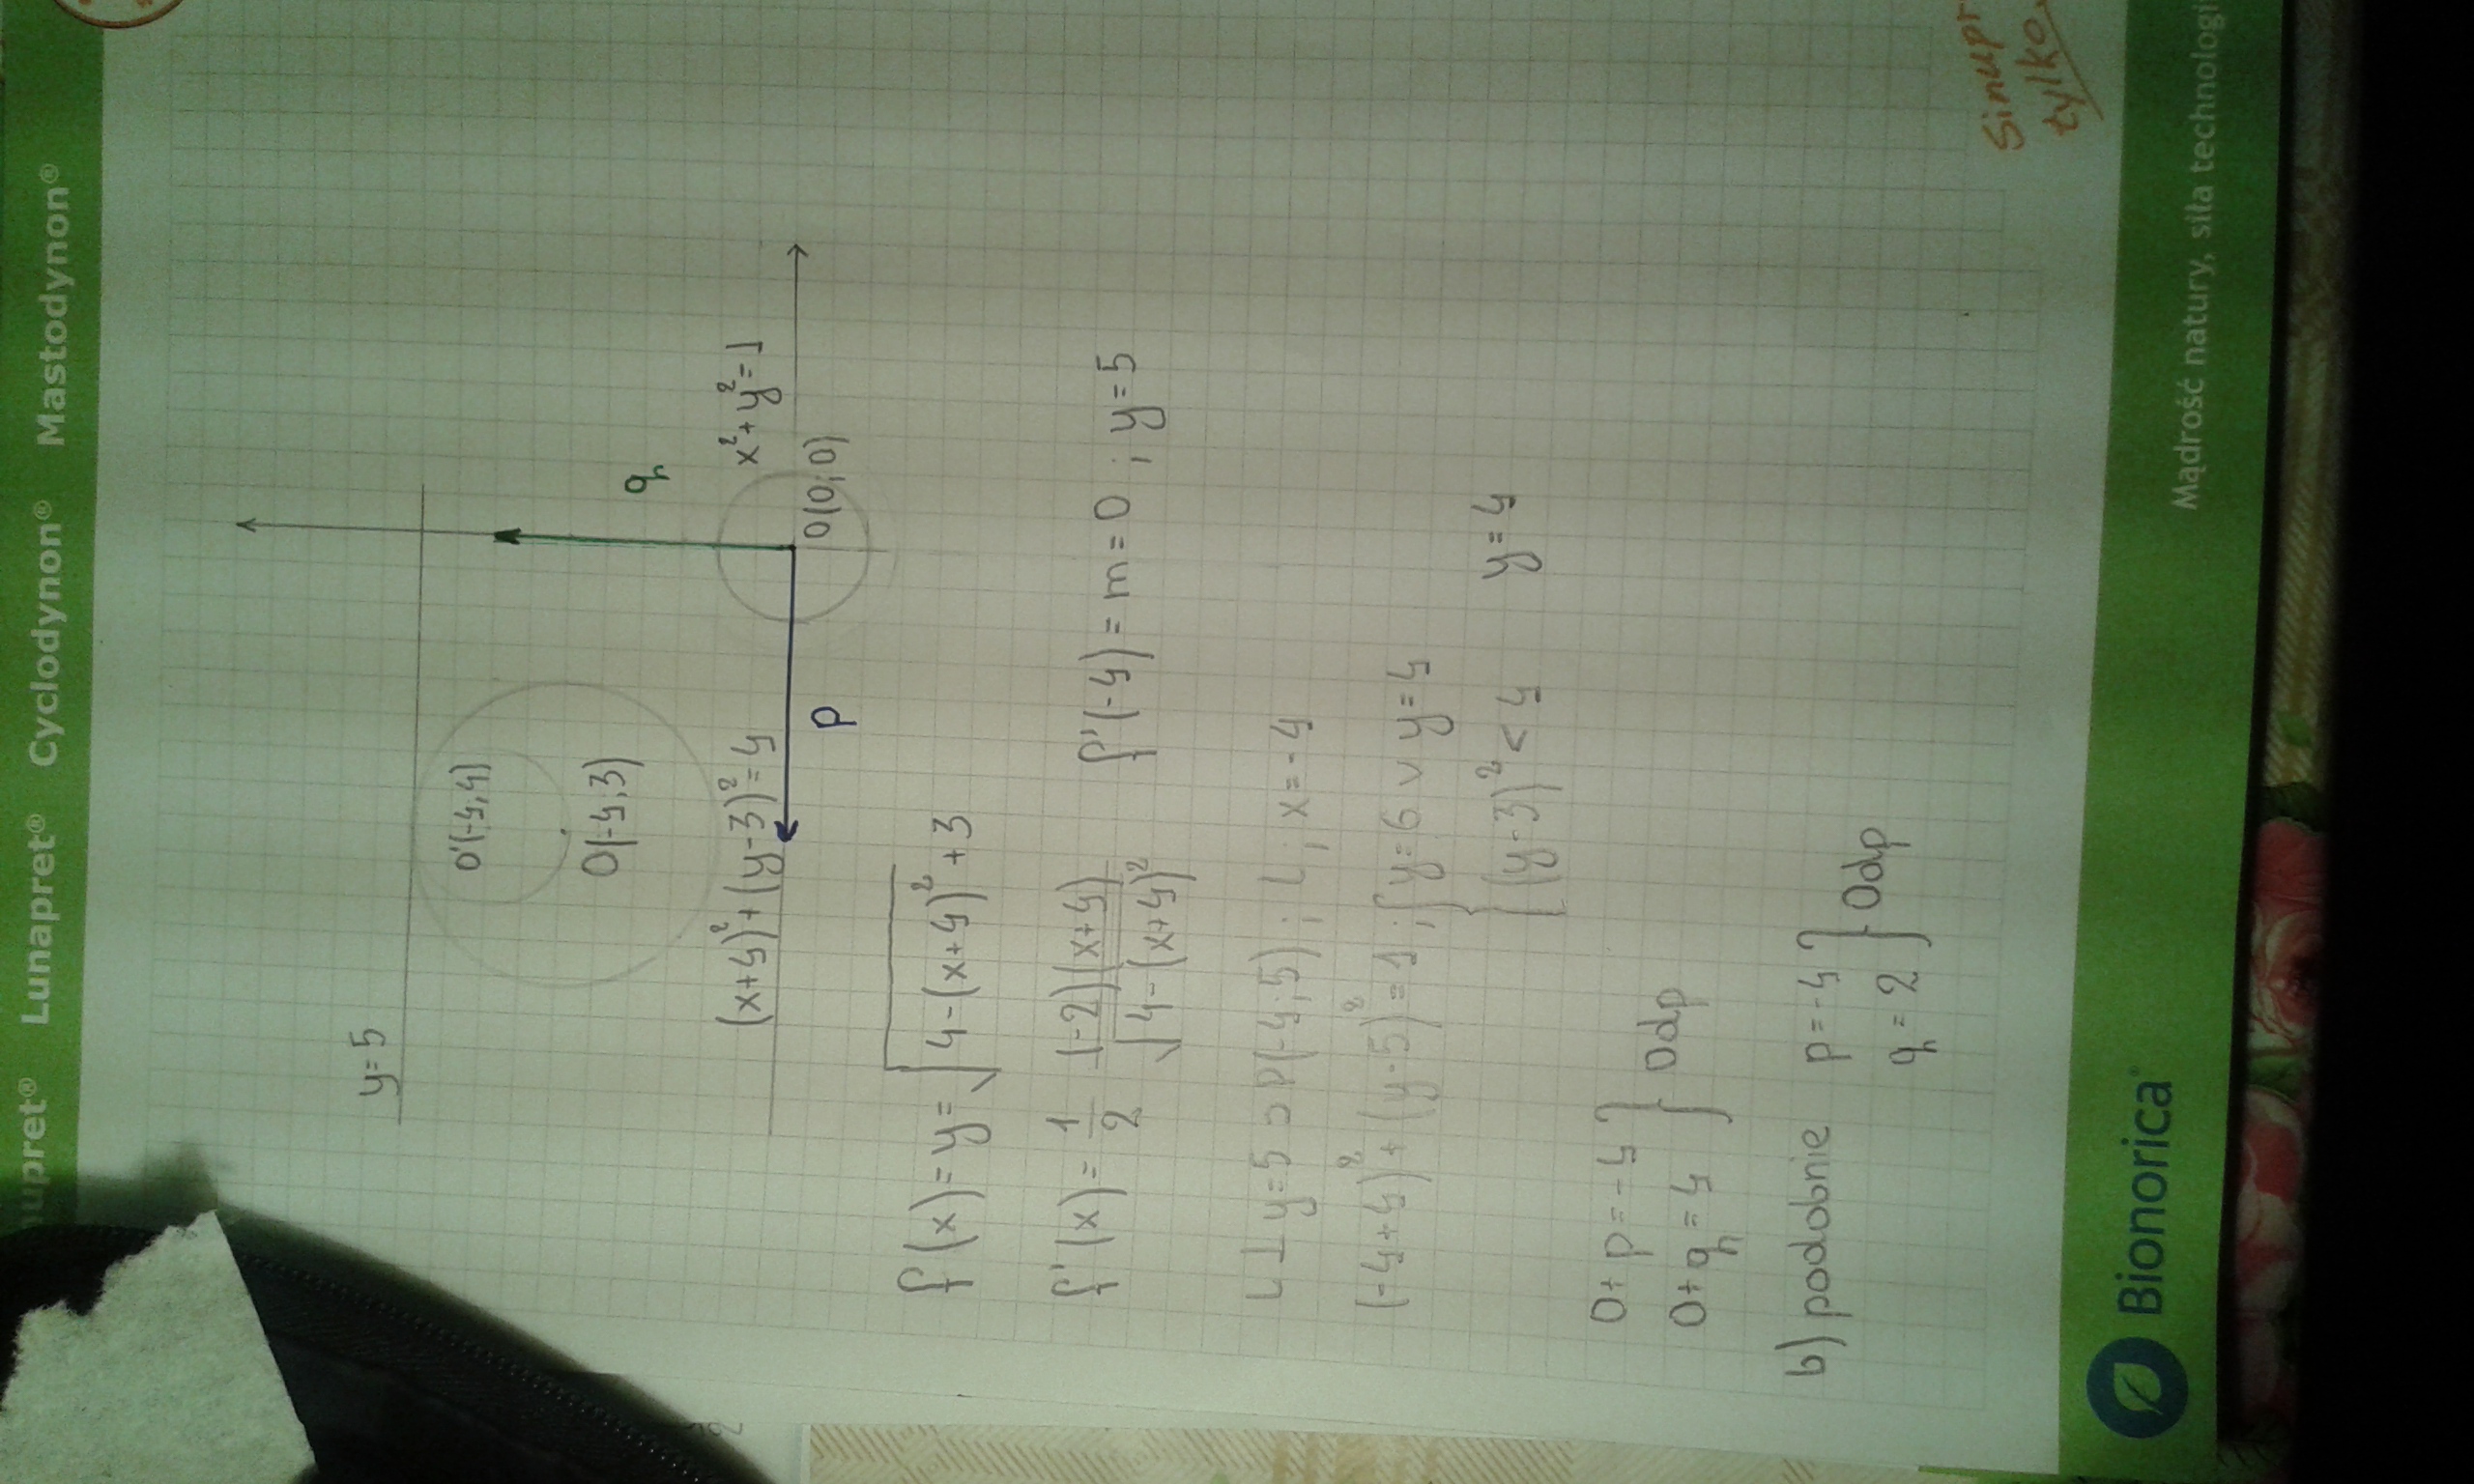 Lunapret® Cyclodynon® Mastodynon®
y=5
O'(-4,4)
O(-4,3)
q
x²+y²=1
O(0;0)
(x+4)²+(y-3)²=4
p
f(x)=y=√4-(x+4)²+3
f'(x)=1/2 (-2)(x+4)/√4-(x+4)² f'(-4)=m=0 ; y=5
L⊥y=5 ⊃ P(-4;5) ; L; x=-4
(-4+4)²+(y-5)²=1 ; { y=6 ∨ y=4
(y-3)²<4 y=4
0+p=-4 }
0+q=4 } Odp
b) podobnie p=-4 }
q=2 } Odp
tylko
Bionorica®
Mądrość natury, siła technologi